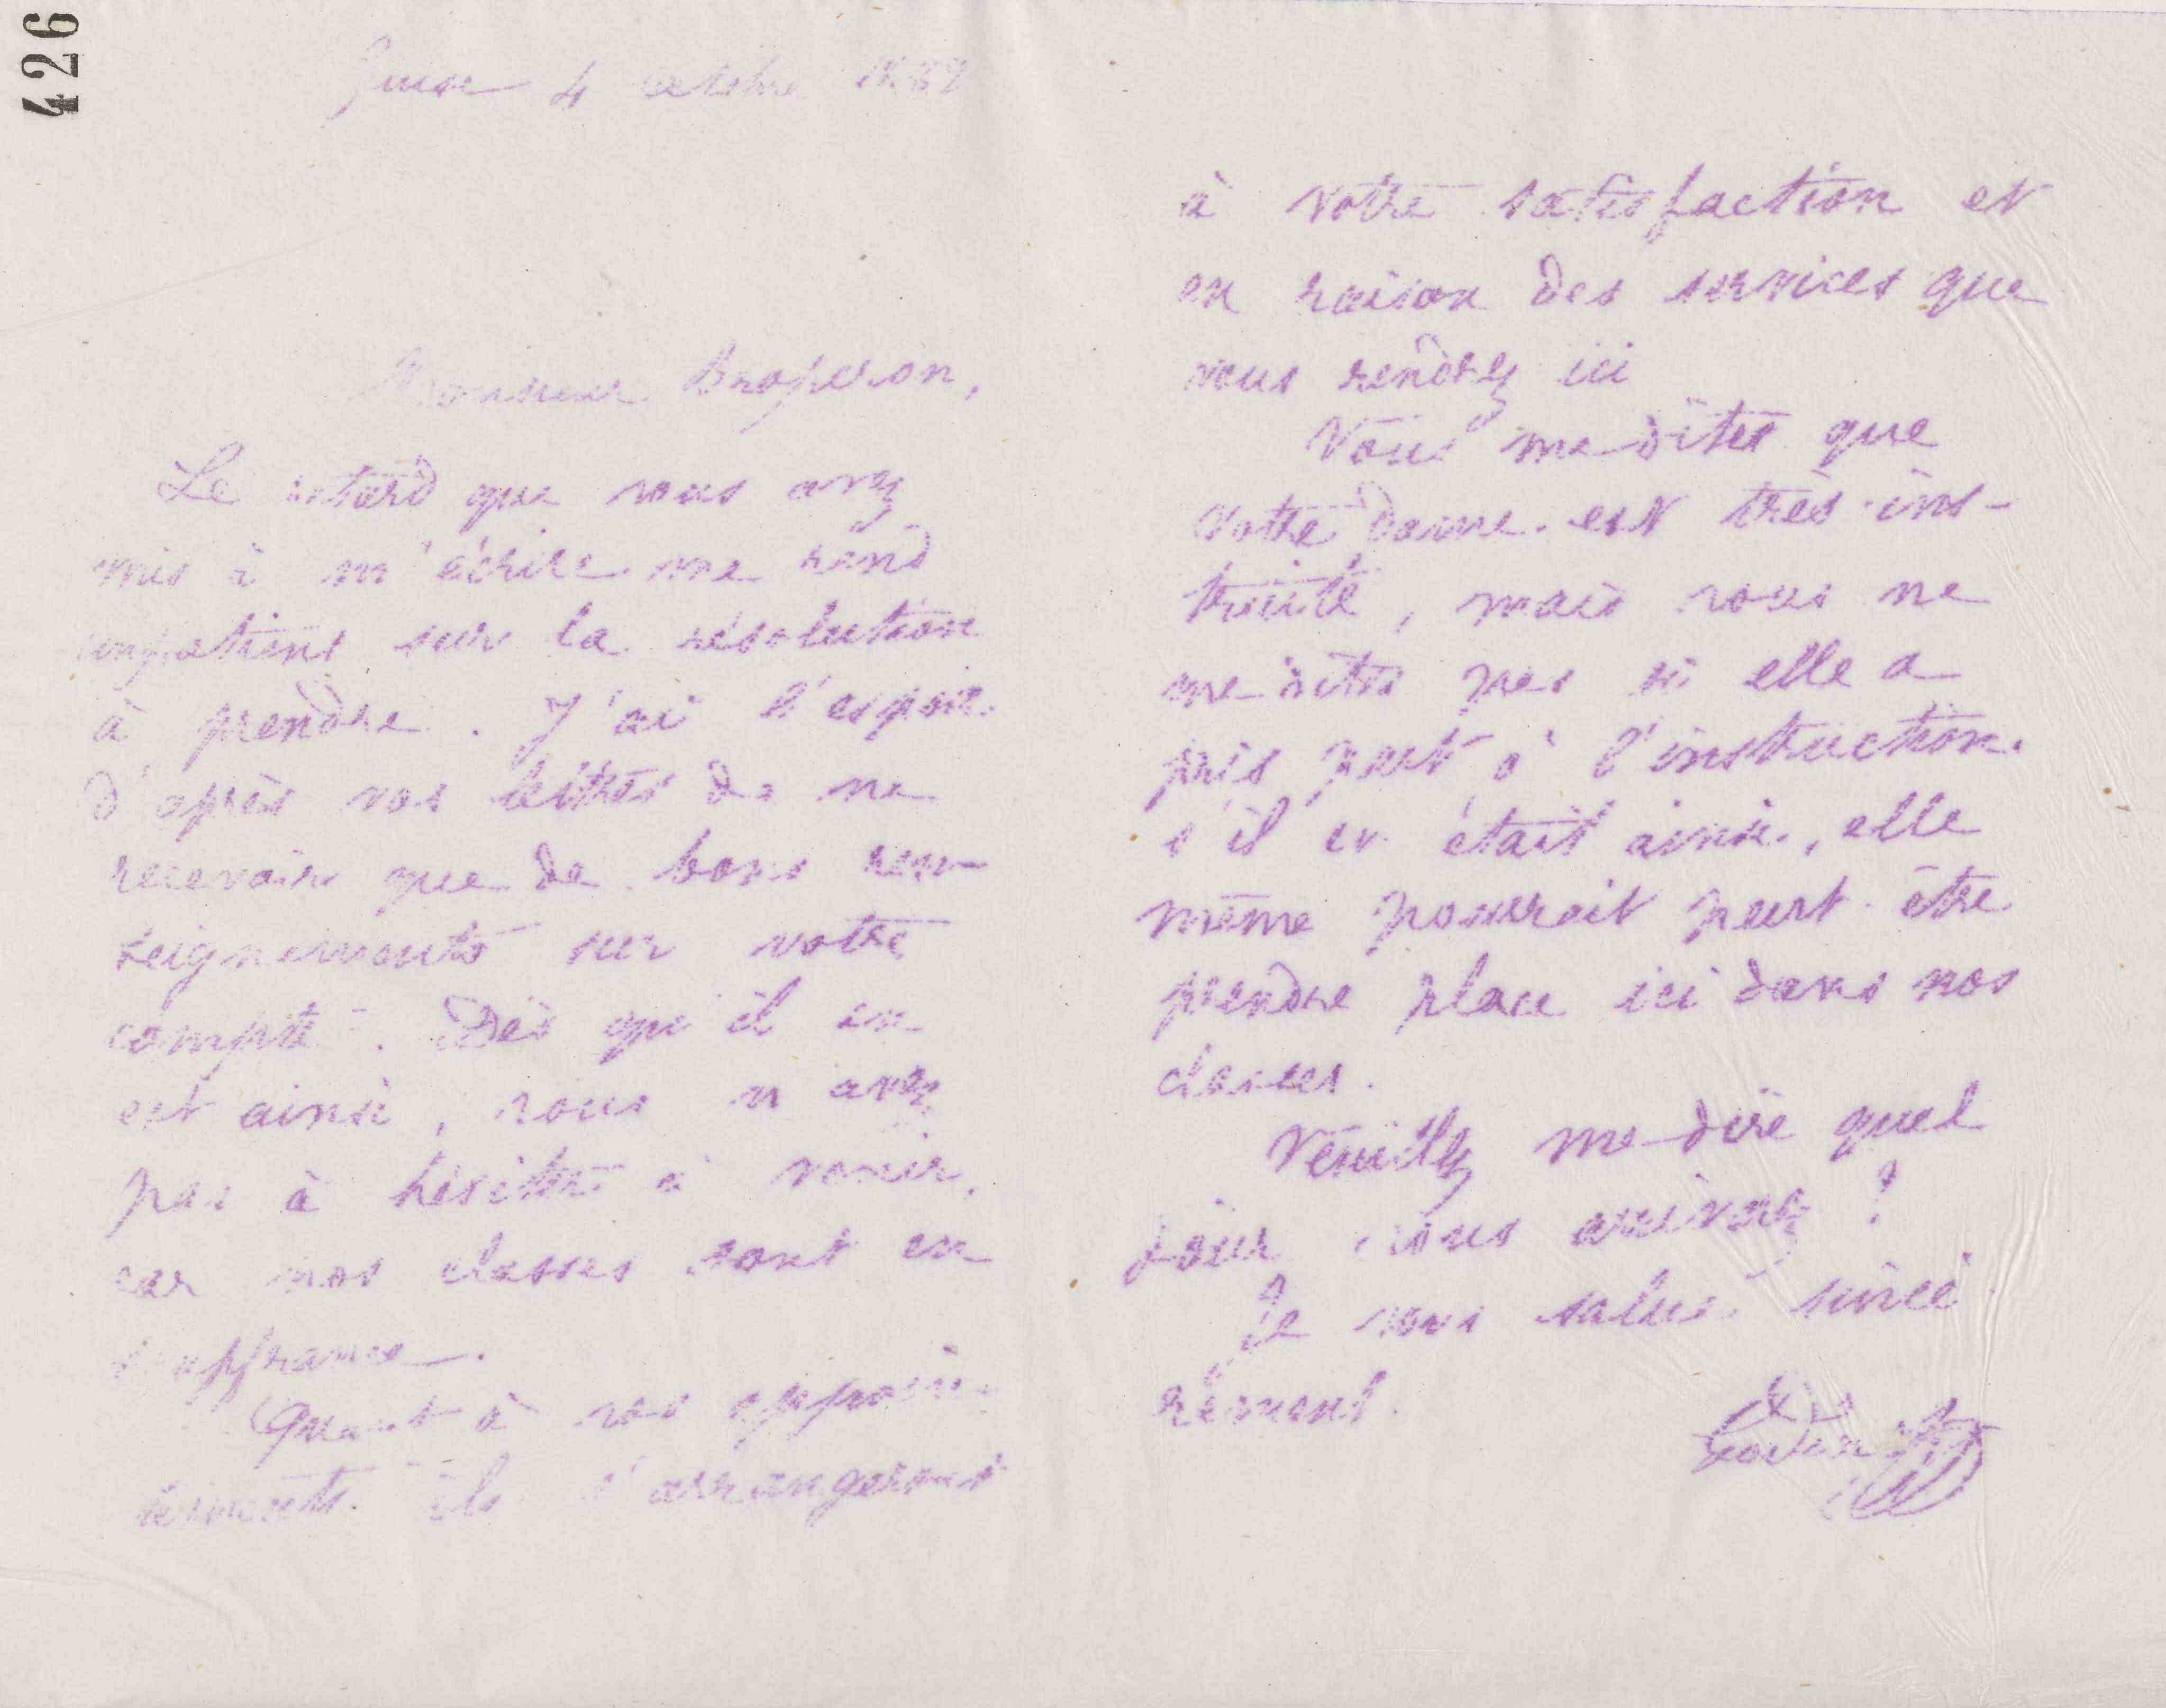 426
Guise 4 octobre
Monsieur
Le retard que vous avez
mis à m'écrire me rend
impatient sur la résolution
à prendre. J'ai l'espoir
d'après vos lettres de ne
recevoir que de bons ren-
seignements sur votre
compte. Dès qu'il en
est ainsi, vous n'avez
pas à hésiter à venir,
car nos classes sont en
souffrance.
Quant à vos appoin-
tements ils s'arrangeront
à votre satisfaction et
en raison des services que
vous rendrez ici
Vous me dites que
votre dame est très ins-
truite, mais vous ne
me dites pas si elle a
pris part à l'instruction.
s'il en était ainsi, elle
même pourrait peut-être
prendre place ici dans nos
classes.
Veuillez me dire quel
jour vous arrivez ?
Je vous salue sincè
rement.
Godin